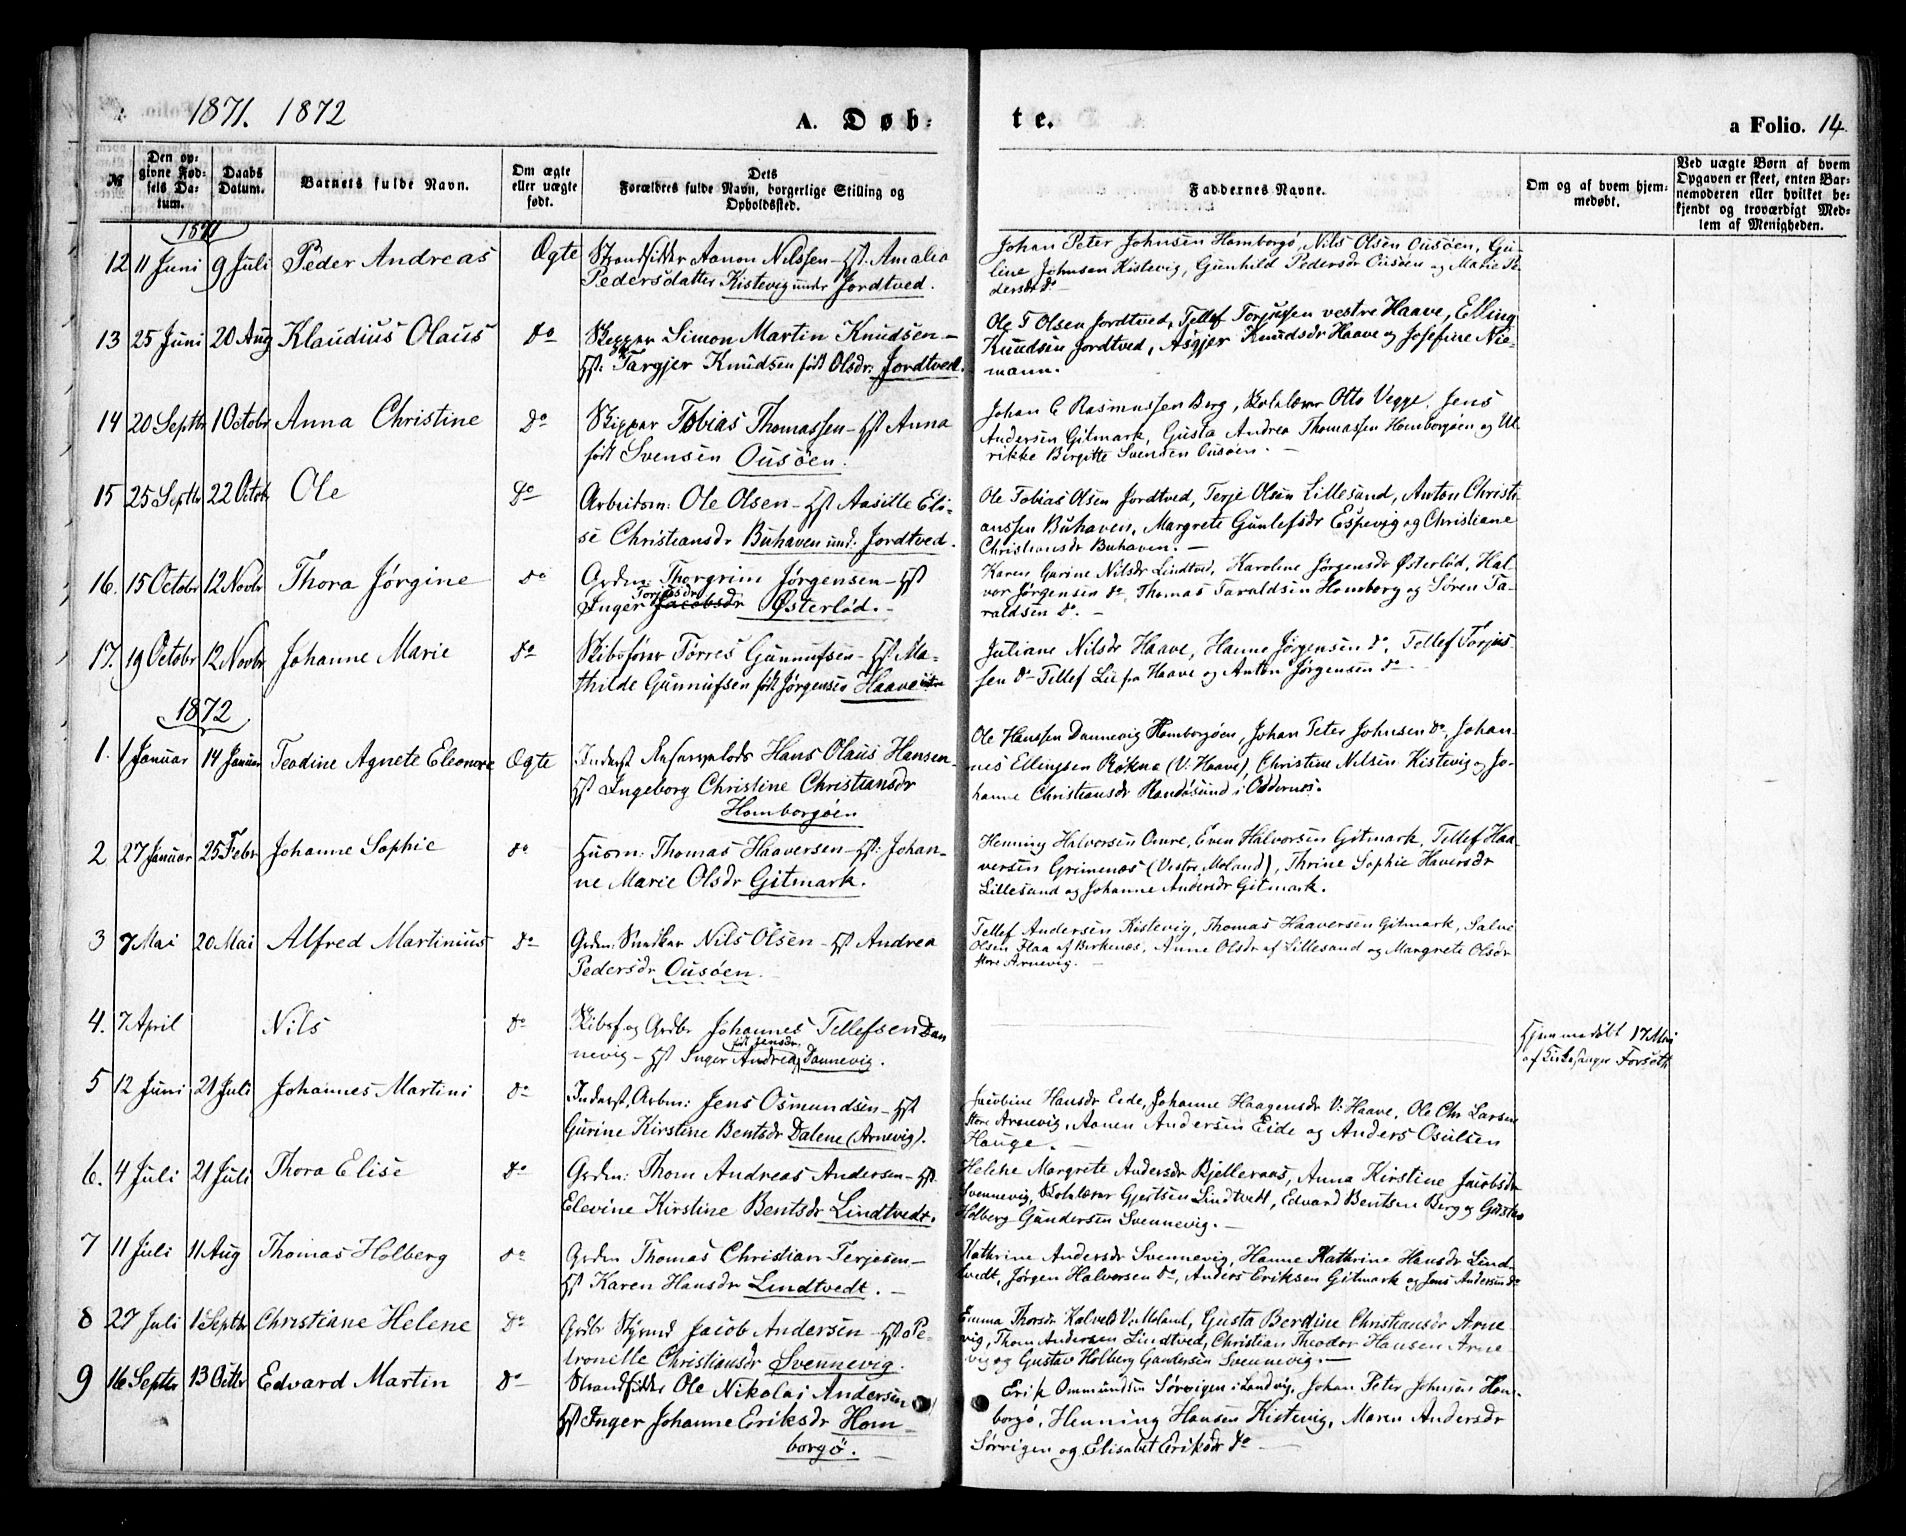 1871. 1872
A. Døb-
te.
a Folio. 14.
№
Den op-
givne Fød-
sels Da-
tum.
Daabs
Datum.
Barnets fulde Navn.
Om ægte
eller uægte
født.
Dets
Forældres fulde Navn, borgerlige Stilling og
Opholdssted.
Faddernes Navne.
Om og af hvem hjem-
medøbt.
Ved uægte Børn af hvem
Opgaven er skeet, enten Bar-
nemoderen eller hvilket be-
kjendt og troværdigt Med-
lem af Menigheden.
1871
12 11 Juni 9 Juli Peder Andreas Ægte Strandsidder Aanon Nilssen - Hst. Amalia
Pedersdatter Kistevig under Jordtved.
Johan Peter Johnsen Homborgø, Nils Olsen Ousøen, Gu-
line Johnsen Kistevig, Gunhild Pedersdr Ousøen og Marie Pe-
dersdr do
13 25 Juni 20 Aug Klaudius Olaus do Skipper Simon Martin Knudsen -
Hst: Targjer Knudsen født Olsdr: Jordtved.
Ole T Olsen Jordtved, Tellef Torjussen vestre Haave, Elling
Knudsen Jordtved, Asgjer Knudsdr Haave og Josefine Nie-
mann.
14 20 Septbr 1 Octobr Anna Christine do Skipper Tobias Thomassen - Hst Anna
født Svensen Ousøen.
Johan C Rasmussen Berg, Skolelærer Otto Vegge, Jens
Andersen Gitmark, Gusta Andrea Thomassen Homborgøen og Ul-
rikke Birgitte Svensen Ousøen. -
15 25 Septbr 22 Octobr Ole do Arbeidsm: Ole Olsen - Hst Aasille Eli-
se Christiansdr Buhaven und. Jordtved.
Ole Tobias Olsen Jordtved, Terje Olsen Lillesand, Anton Christi-
anssen Buhaven, Margrete Gunlefsdr Espevig og Christiane
Christiansdr Buhaven. -
16. 15 Octobr 12 Novbr Thora Jørgine do Grdm: Thorgrim Jørgensen - Hst
Torjusdr
Inger Jacobsdr Østerlød. -
Karen Gurine Nilsdr Lindtved, Karoline Jørgensdr Østerlød, Hal-
vor Jørgensen do, Thomas Taraldsen Homborg og Søren Ta-
raldsen do. -
17. 19 Octobr 12 Novbr Johanne Marie do Skibsfører Torres Gunnufsen - Hst. Ma-
thilde Gunnufsen født Jørgensen Haave
Juliane Nilsdr Haave, Hanne Jørgensen do, Tellef Torjus-
sen do Tellef Lie fra Haave og Anton Jørgensen do -
1872
1. 1 Januar 14 Januar Teodine Agnete Eleonore Ægte Inderst Hans Olaus Hansen -
Hst Ingeborg Christine Christiansdr
Homborgøen
Ole Hanssen Dannevig Homborgøen, Johan Peter Johnsen do, Johan-
nes Ellingsen Røkna (V: Haave), Christine Nilsen Kistevig og Jo-
hanne Christiansdr Randøsund i Oddernes.
2 27 Januar 25 Febr Johanne Sophie do Husm: Thomas Haaversen - Hst: Johan-
ne Marie Olsdr Gitmark.
Henning Halvorsen Omre, Even Halvorsen Gitmark, Tellef Haa-
versen Grimenæs (Vestre Moland), Thrine Sophie Haversdr
Lillesand og Johanne Andersdr Gitmark.
3 7 Mai 20 Mai Alfred Martinius do Grdm: Snedker Nils Olsen - Hst Andrea
Pedersdr Ousøen.
Tellef Andersen Kistevig, Thomas Haaversen Gitmark, Salve
Olsen Flaa af Birkenæs, Anne Olsdr af Lillesand og Margrete Olsdr
store Arnevig. -
4. 7 April Nils do Skibsf. og Grdbr Johannes Tellefsen Dan-
født Jensdr
nevig - Hst Inger Andrea, Dannevig.
Hjemmedøbt 17 Mai
af Kirkesanger Forsøth
5 12 Juni 21 Juli Johannes Martini do Inderst, Arbm: Jens Osmundsen - Hst
Gurine Kirstine Bentsdr Dalene (Arnevig).
Jacobine Hansdr Eide, Johanne Haagensdr V: Haave, Ole Chr Larsen
store Arnevig, Aanen Andersen Eide og Anders Osulsen
Hauge. -
6. 4 Juli 21 Juli Thora Elise do Grdm: Thom Andreas Andersen - Hst.
Elevine Kirstine Bentsdr Lindtvedt.
Helene Margrete Andersdr Bjelleraas, Anna Kirstine Jacobsdr
Svennevig, Skolelærer Gjertsen Lindtvedt, Edvard Bentsen Berg og Gustav
Holberg Gundersen Svennevig. -
7 11 Juli 11 Aug Thomas Holberg do Grdm Thomas Christian Terjesen -
Hst Karen Hansdr Lindtvedt. -
Kathrine Andersdr Svennevig, Hanne Kathrine Hansdr Lind-
tvedt, Jørgen Halversen do, Anders Eriksen Gitmark og Jens Andersen do
8 27 Juli 1 Septbr Christiane Helene do Grdbr Styrmd Jacob Andersen - Hst Pe-
tronelle Christiansdr Svennevig.
Emma Thorsdr Kalvehl V. Moland, Gusta Berdine Christiansdr Arne-
vig, Thom Andersen Lindtved, Christian Theodor Hansen Arne-
vig og Gustav Holberg Gundersen Svennevig. -
9 16 Septbr 13 Octbr Edvard Martin do Strandsidder Ole Nikolai Andersen
Hst Inger Johanne Eriksdr Hom-
borgø. -
Erik Ommundsen Sørvigen i Landvig, Johan Peter Johnsen Hom-
borgø, Henning Hansen Kistevig, Maren Andersdr
Sørvigen og Elisabet Eriksdr do -